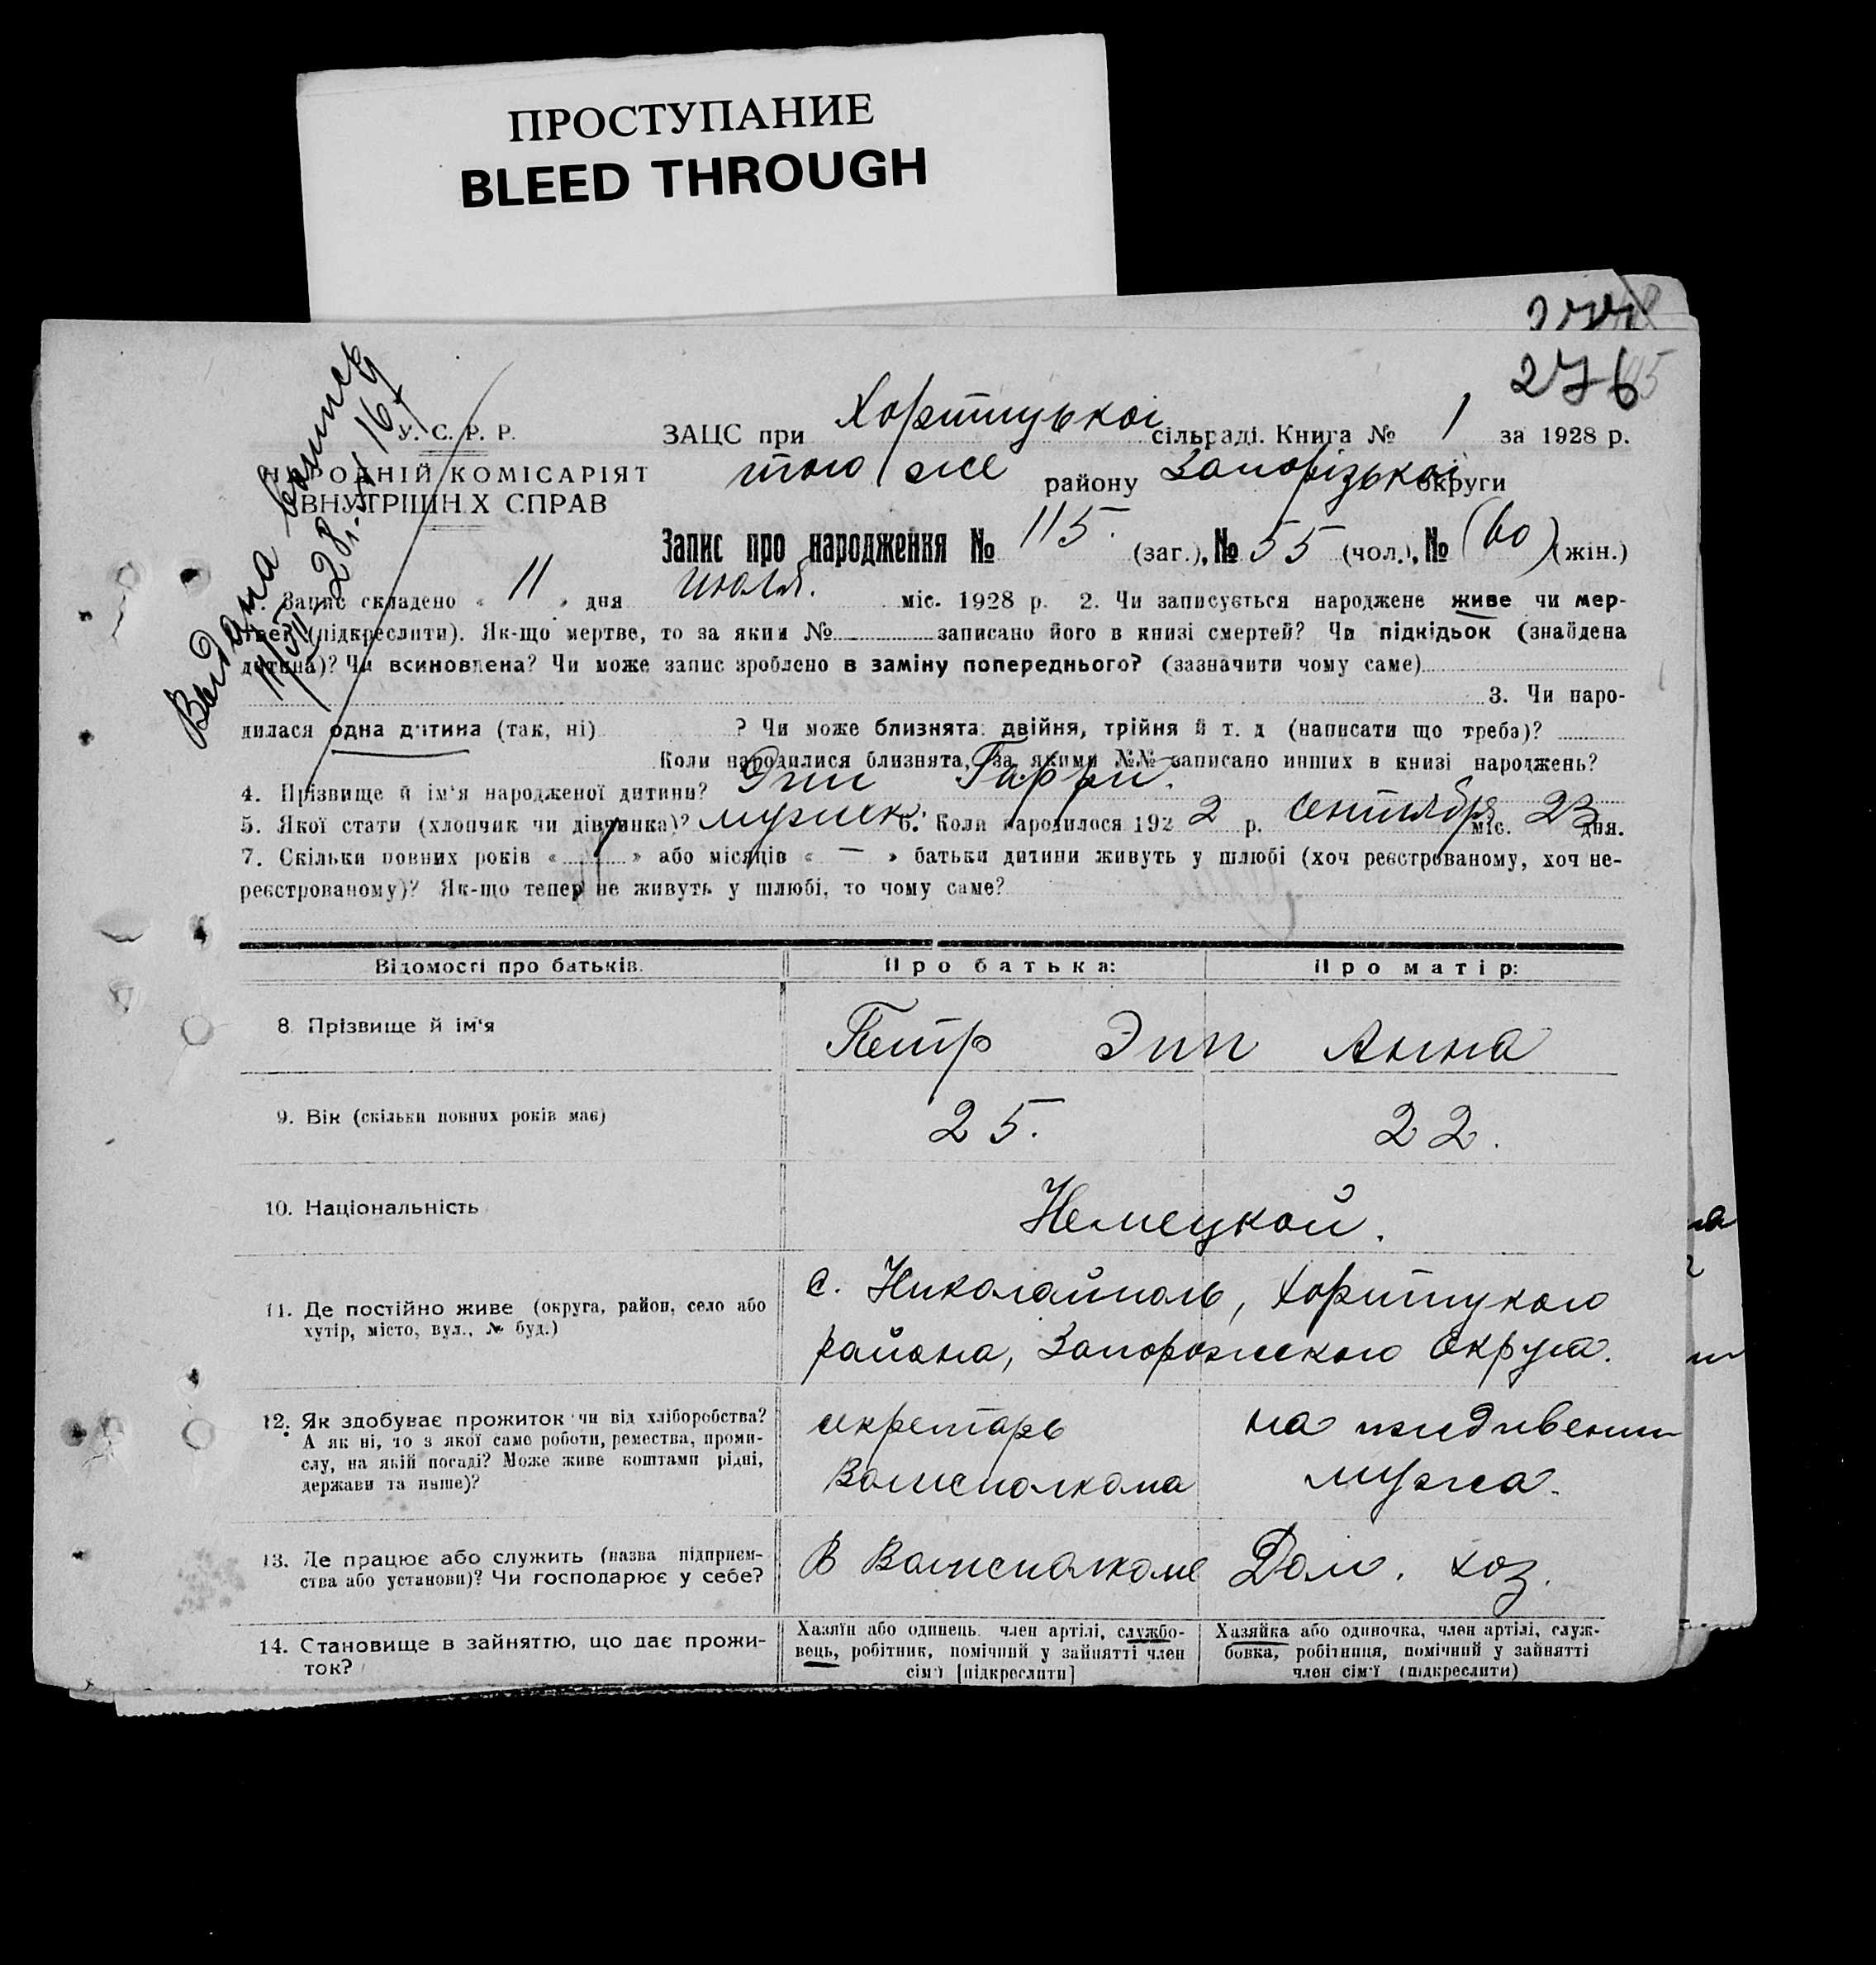 ПРОСТУПАНИЕ
BLEED THROUGH
276
Выдана выпись
11/VII-28г. № 167
У. С. Р. Р.
НАРОДНІЙ КОМІСАРІЯТ
ВНУТРІШНІХ СПРАВ
ЗАЦС при Хортицькоі сільраді. Книга № 1 за 1928 р.
того же району Запорізькоі округи
Запис про народження № 115. (заг.), № 55 (чол.), № (60) (жін.)
1. Запис складено « 11 » дня июля. міс. 1928 р. 2. Чи записується народжене живе чи мер-
тве? (підкреслити). Як-що мертве, то за яким № записано його в книзі смертей? Чи підкідьок (знайдена
дитина)? Чи всиновлена? Чи може запис зроблено в заміну попереднього? (зазначити чому саме)
3. Чи наро-
дилася одна дитина (так, ні) ? Чи може близнята: двійня, трійня й т. д (написати що треба)?
Коли народилися близнята, за якими №№ записано инших в книзі народжень?
4. Прізвище й ім'я народженої дитини? Эпп Гарри.
5. Якої стати (хлопчик чи дівчинка)? мужск. 6. Коли народилося 1922 р. сентября міс. 23 дня.
7. Скільки повних років « » або місяців « — » батьки дитини живуть у шлюбі (хоч реєстрованому, хоч не-
реєстрованому)? Як-що тепер не живуть у шлюбі, то чому саме?
Відомості про батьків. Про батька: Про матір:
8. Прізвище й ім'я Петр Эпп Анна
9. Вік (скільки повних років має) 25. 22.
10. Національність Немецкой.
11. Де постійно живе (округа, район, село або
хутір, місто, вул., № буд.)
с. Николайполь, Хортицкого
района, Запорожского Округа.
12. Як здобуває прожиток чи від хліборобства?
А як ні, то з якої саме роботи, ремества, проми-
слу, на якій посаді? Може живе коштами рідні,
держави та инше)?
секретарь
Волисполкома
на иждивении
мужа.
13. Де працює або служить (назва підприєм-
ства або установи)? Чи господарює у себе?
В Волисполкоме Дом. хоз.
14. Становище в зайняттю, що дає прожи-
ток?
Хазяїн або одинець, член артілі, службо-
вець, робітник, помічний у зайнятті член
сім'ї [підкреслити]
Хазяйка або одиночка, член артілі, служ-
бовка, робітниця, помічний у зайнятті
член сім'ї (підкреслити)